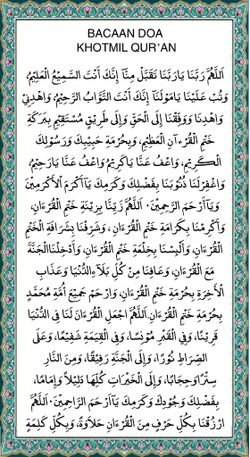 BACAAN DOA
KHOTMIL QUR'AN
اَللّٰهُمَّ رَبَّنَا يَارَبَّنَا تَقَبَّلْ مِنَّا إِنَّكَ أَنْتَ السَّمِيْعُ الْعَلِيْمُ،
وَتُبْ عَلَيْنَا يَامَوْلَنَا إِنَّكَ أَنْتَ التَّوَّابُ الرَّحِيْمُ، وَاهْدِنِيْ
وَاهْدِنَا وَوَفِّقْنَا إِلَى الْحَقِّ وَإِلَى طَرِيْقٍ مُسْتَقِيْمٍ بِبَرَكَةِ
خَتْمِ الْقُرْءٰنِ الْعَظِيْمِ، وَبِحُرْمَةِ حَبِيْبِكَ وَرَسُوْلِكَ
الْكَرِيْمِ، وَاعْفُ عَنَّا يَاكَرِيْمُ وَاعْفُ عَنَّا يَارَحِيْمُ
وَاغْفِرْلَنَا ذُنُوْبَنَا بِفَضْلِكَ وَكَرَمِكَ يَاأَكْرَمَ الْأَكْرَمِيْنَ
وَيَاأَرْحَمَ الرَّحِمِيْنَ. اَللّٰهُمَّ زَيِّنَّا بِزِيْنَةِ خَتْمِ الْقُرْءَانِ،
وَأَكْرِمْنَا بِكَرَامَةِ خَتْمِ الْقُرْءَانِ، وَشَرِّفْنَا بِشَرَافَةِ الْخَتْمِ
الْقُرْءَانِ، وَأَلْبِسْنَا بِخِلْعَةِ خَتْمِ الْقُرْءَانِ، وَأَدْخِلْنَاالْجَنَّةَ
مَعَ الْقُرْءَانِ، وَعَافِنَا مِنْ كُلِّ بَلَاءِالدُّنْيَا وَعَذَابِ
الْأٰخِرَةِ بِحُرْمَةِ خَتْمِ الْقُرْءَانِ، وَارْحَمْ جَمِيْعَ أُمَّةِ مُحَمَّدٍ
بِحُرْمَةِ خَتْمِ الْقُرْءَانِ. اَللّٰهُمَّ اجْعَلِ الْقُرْءَانَ لَنَا فِى الدُّنْيَا
قَرِيْنًا، وَفِى الْقَبْرِ مُوْنِسًا، وَفِى الْقِيٰمَةِ شَفِيْعًا، وَعَلَى
الصِّرَاطِ نُوْرًا، وَإِلَى الْجَنَّةِ رَفِيْقًا، وَمِنَ النَّارِ
سِتْرًاوَحِجَابًا، وَإِلَى الْخَيْرَاتِ كُلِّهَا دَلِيْلًا وَإِمَامًا،
بِفَضْلِكَ وَجُوْدِكَ وَكَرَمِكَ يَاأَرْحَمَ الرَّاحِمِيْنَ. اَللّٰهُمَّ
ارْزُقْنَا بِكُلِّ حَرْفٍ مِنَ الْقُرْءَانِ حَلَاوَةً، وَبِكُلِّ كَلِمَةٍ